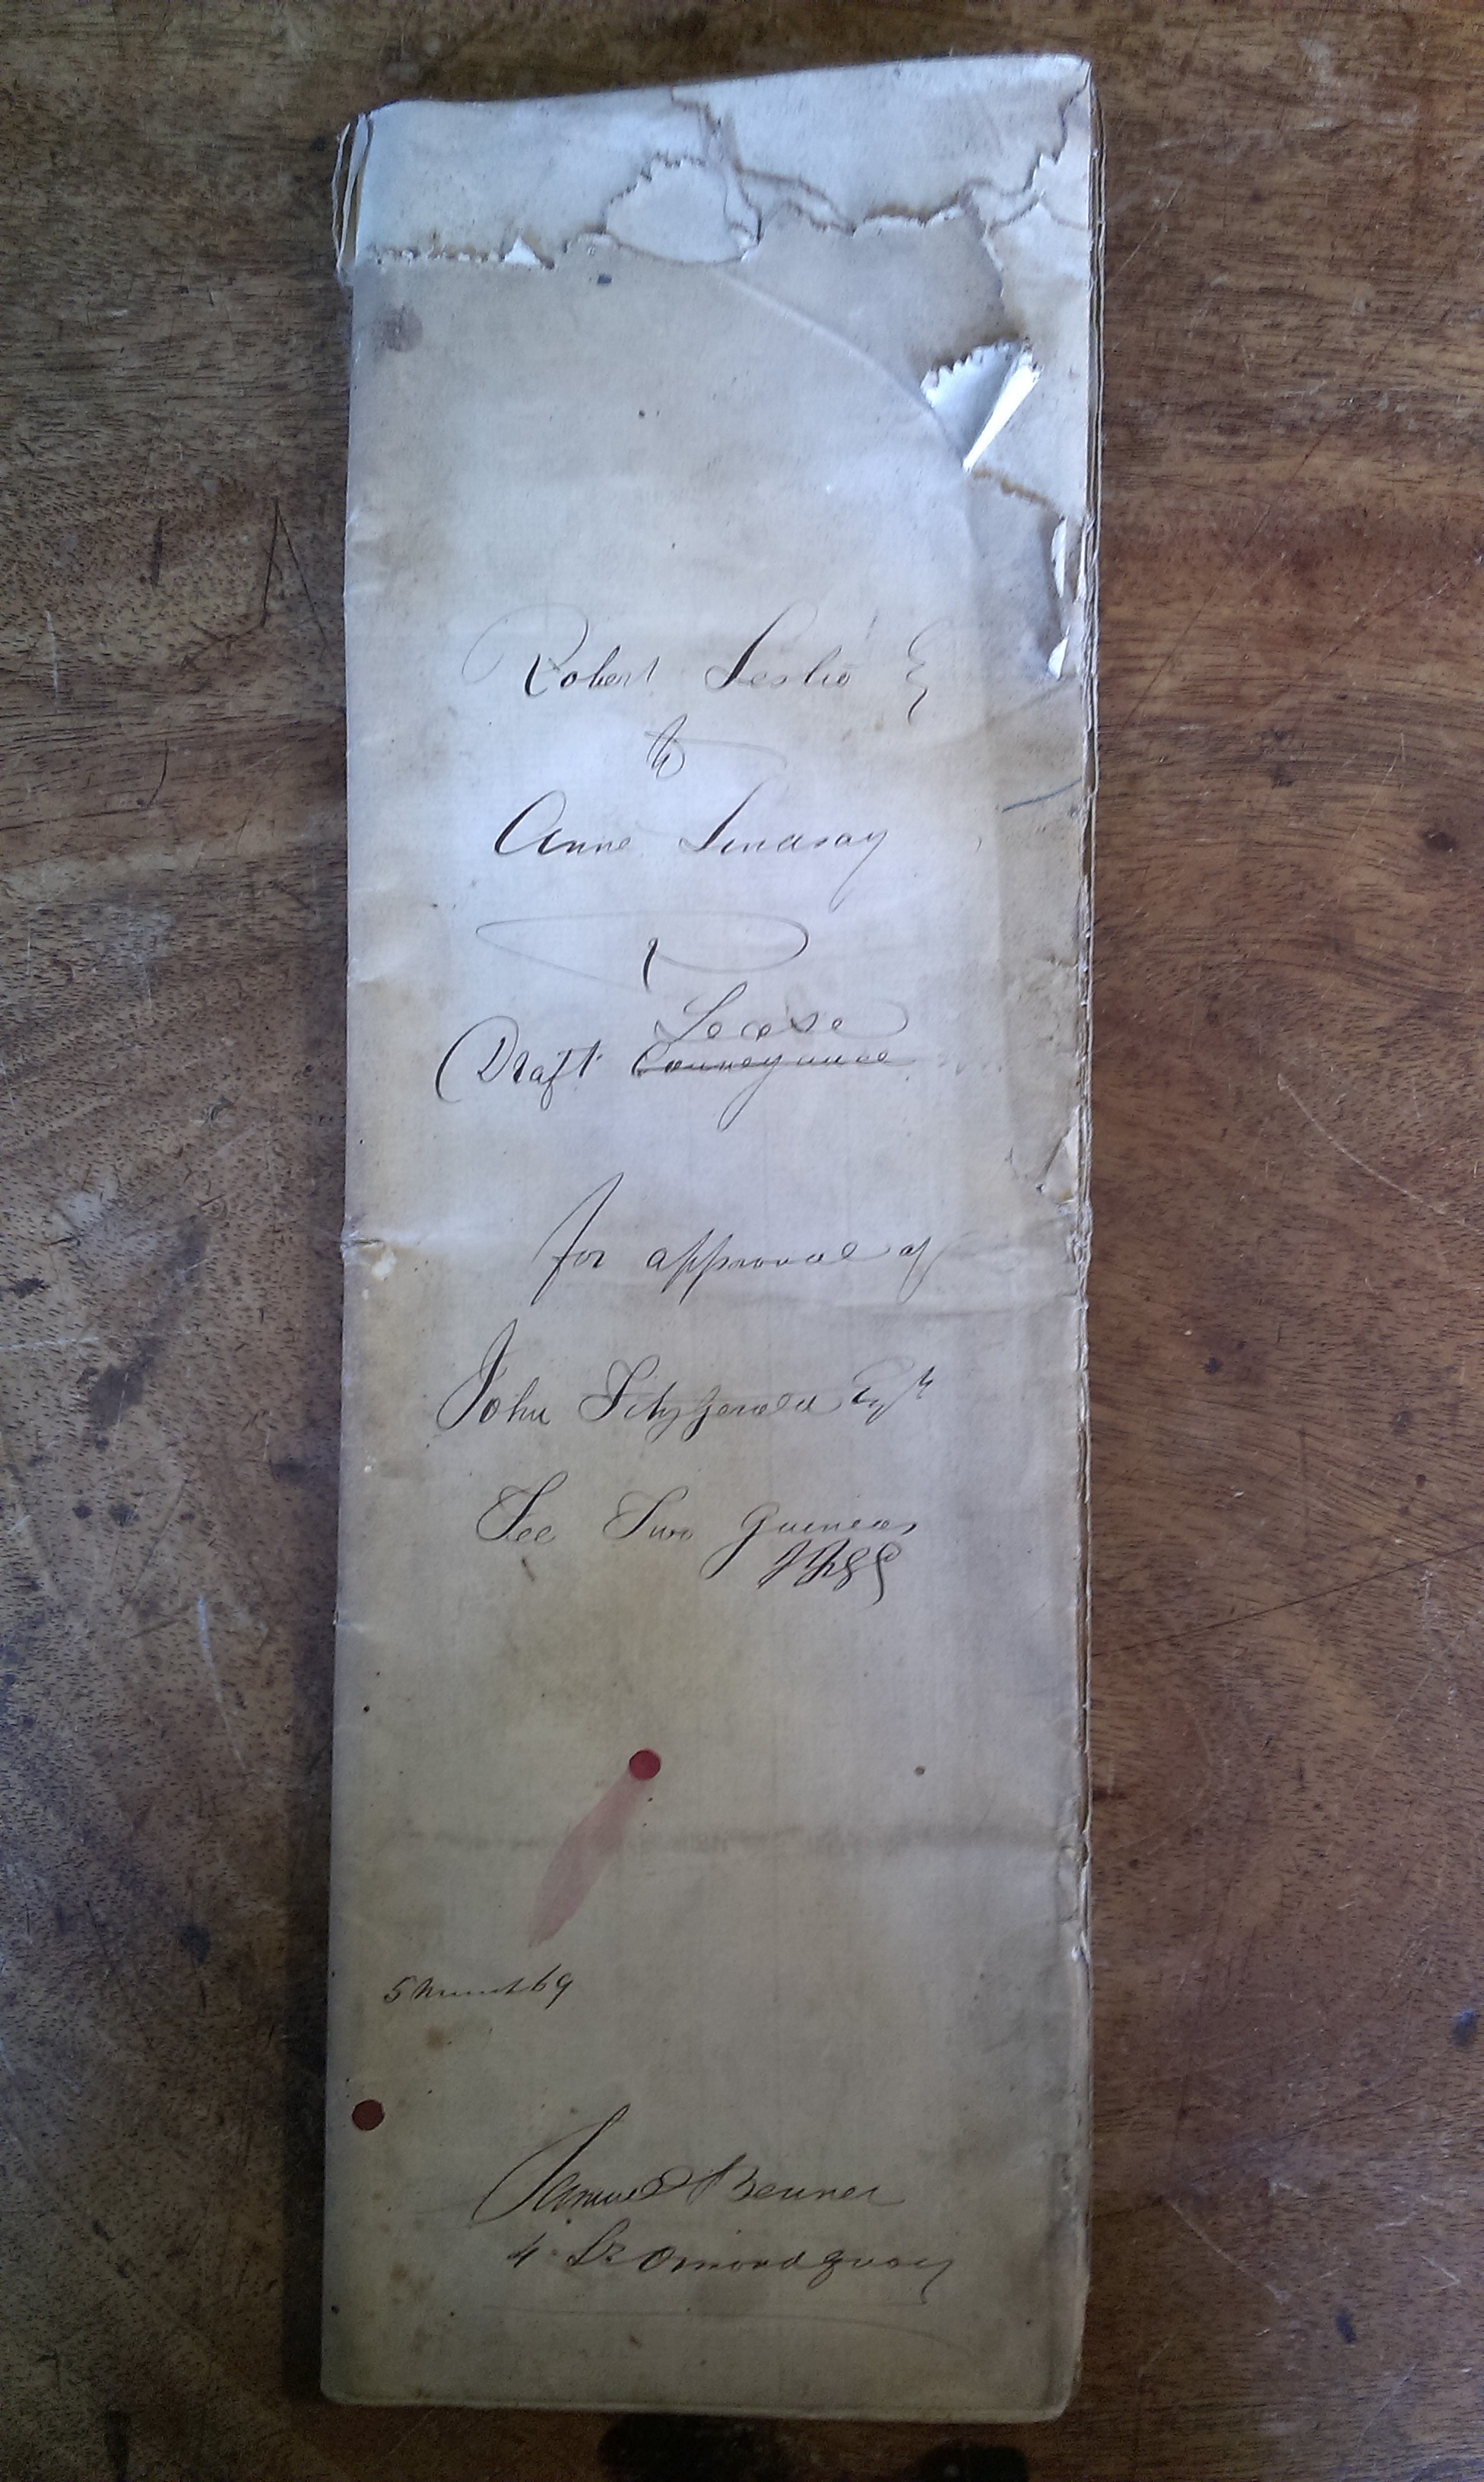 Robert Leslie
to
Anne Lindsay
Lease
Draft Conveyance
for approval of
John Fitzgerald Esqr
Fee Two Guineas
5 March 69
Samuel Benner
4 Lr Ormond Quay